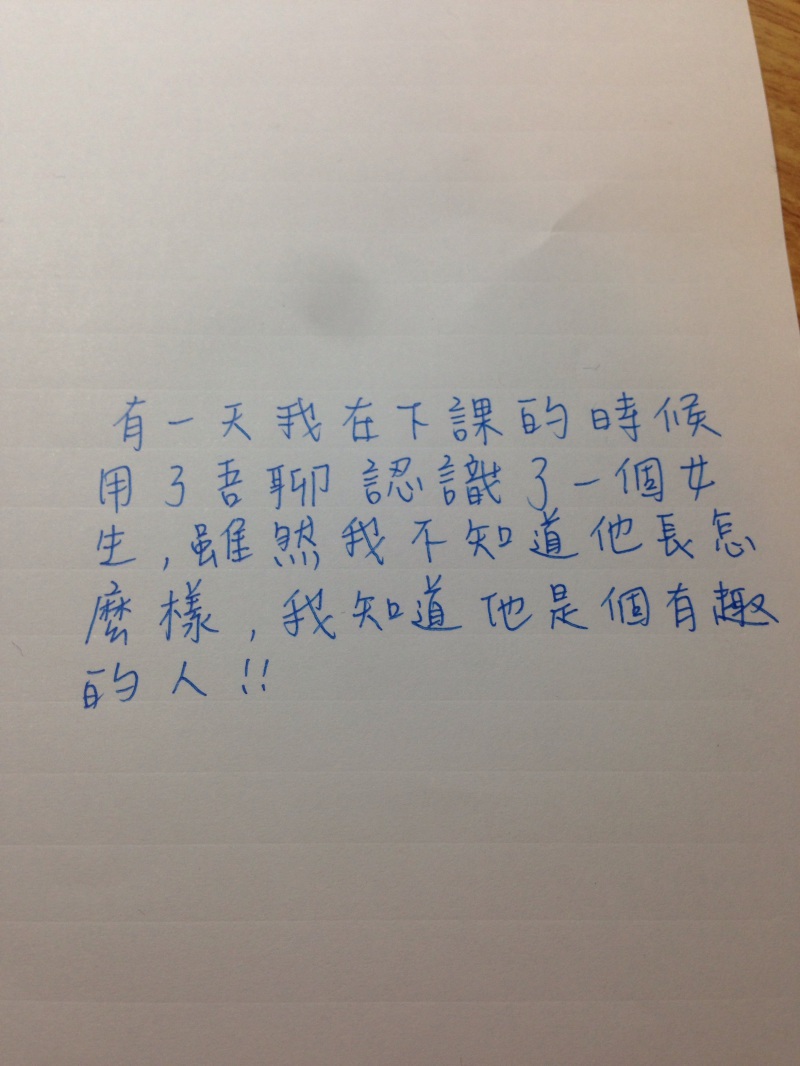 有一天我在下課的時候
用了吾聊認識了一個女
生,雖然我不知道他長怎
麼樣,我知道他是個有趣
的人!!